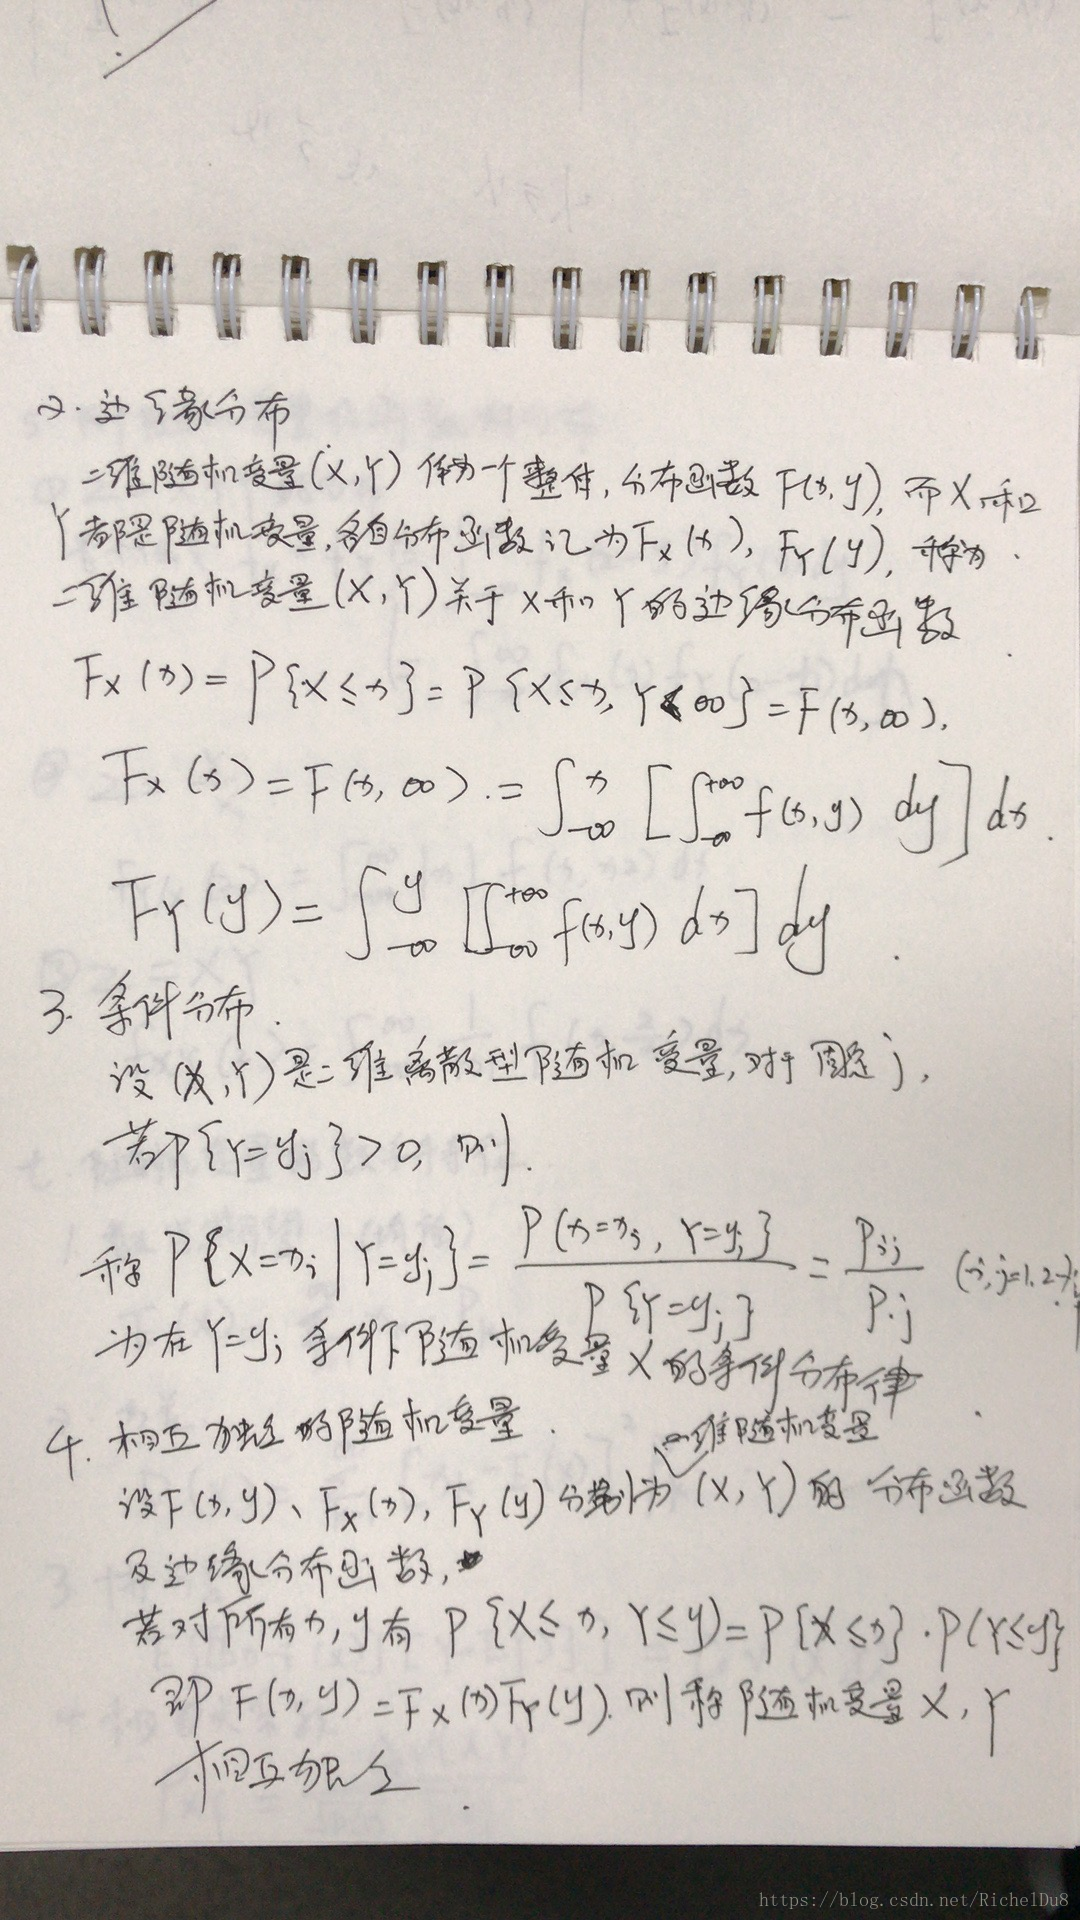 2. 边缘分布
二维随机变量(X,Y) 作为一个整体,分布函数 F(x,y), 而X和
Y都是随机变量,各自分布函数记为F_X(x), F_Y(y), 称为
二维随机变量(X,Y)关于X和Y的边缘分布函数
F_X(x) = P{X≤x} = P{X≤x, Y<∞} = F(x,∞).
F_X(x) = F(x,∞). = ∫_{-∞}^{x} [∫_{-∞}^{+∞} f(x,y) dy] dx.
F_Y(y) = ∫_{-∞}^{y} [∫_{-∞}^{+∞} f(x,y) dx] dy.
3. 条件分布.
设(X,Y)是二维离散型随机变量,对于固定j,
若P{Y=y_j}>0, 则.
称 P{X=x_i | Y=y_j} = P(x=x_i, Y=y_j} / P{Y=y_j} = P_{ij} / P_{·j} (i,j=1,2
为在Y=y_j条件下随机变量X的条件分布律
4. 相互独立的随机变量.
二维随机变量
设F(x,y)、F_X(x), F_Y(y)分别为(X,Y)的分布函数
及边缘分布函数,
若对所有x,y有 P{X≤x, Y≤y)=P{X≤x}·P(Y≤y}
即 F(x,y)=F_X(x)F_Y(y). 则称随机变量X,Y
相互独立.
https://blog.csdn.net/RichelDu8